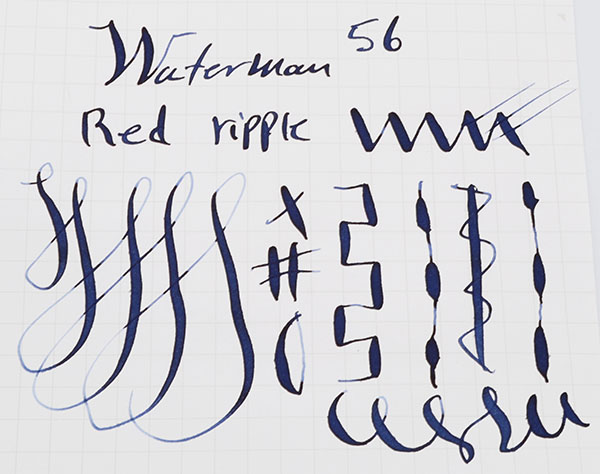 Waterman 56
Red ripple